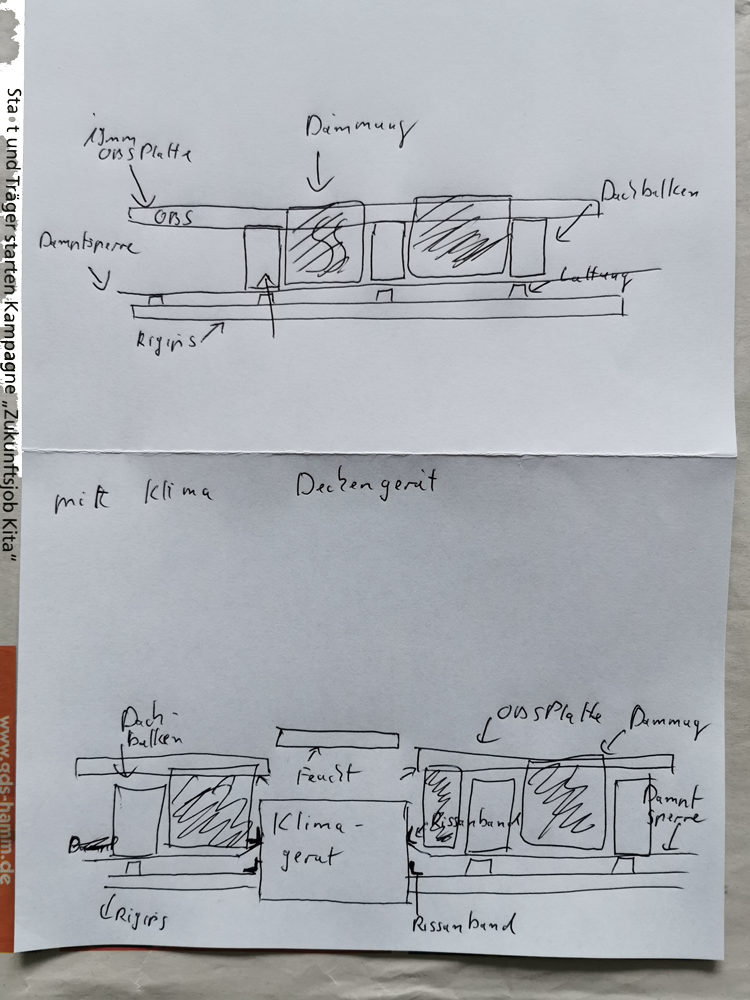 Stadt und Träger starten Kampagne „Zukunftsjob Kita“
www.gds-hamm.de
19mm
OBS Platte
Dämmung
Dachbalken
OBS
Dampfsperre
Lattung
Rigips
mit Klima Deckengerät
Dach-
balken
OBS Platte
Dämmung
Feucht
Klima-
gerät
Rissanband
Dampf
sperre
Rigips
Rissanband